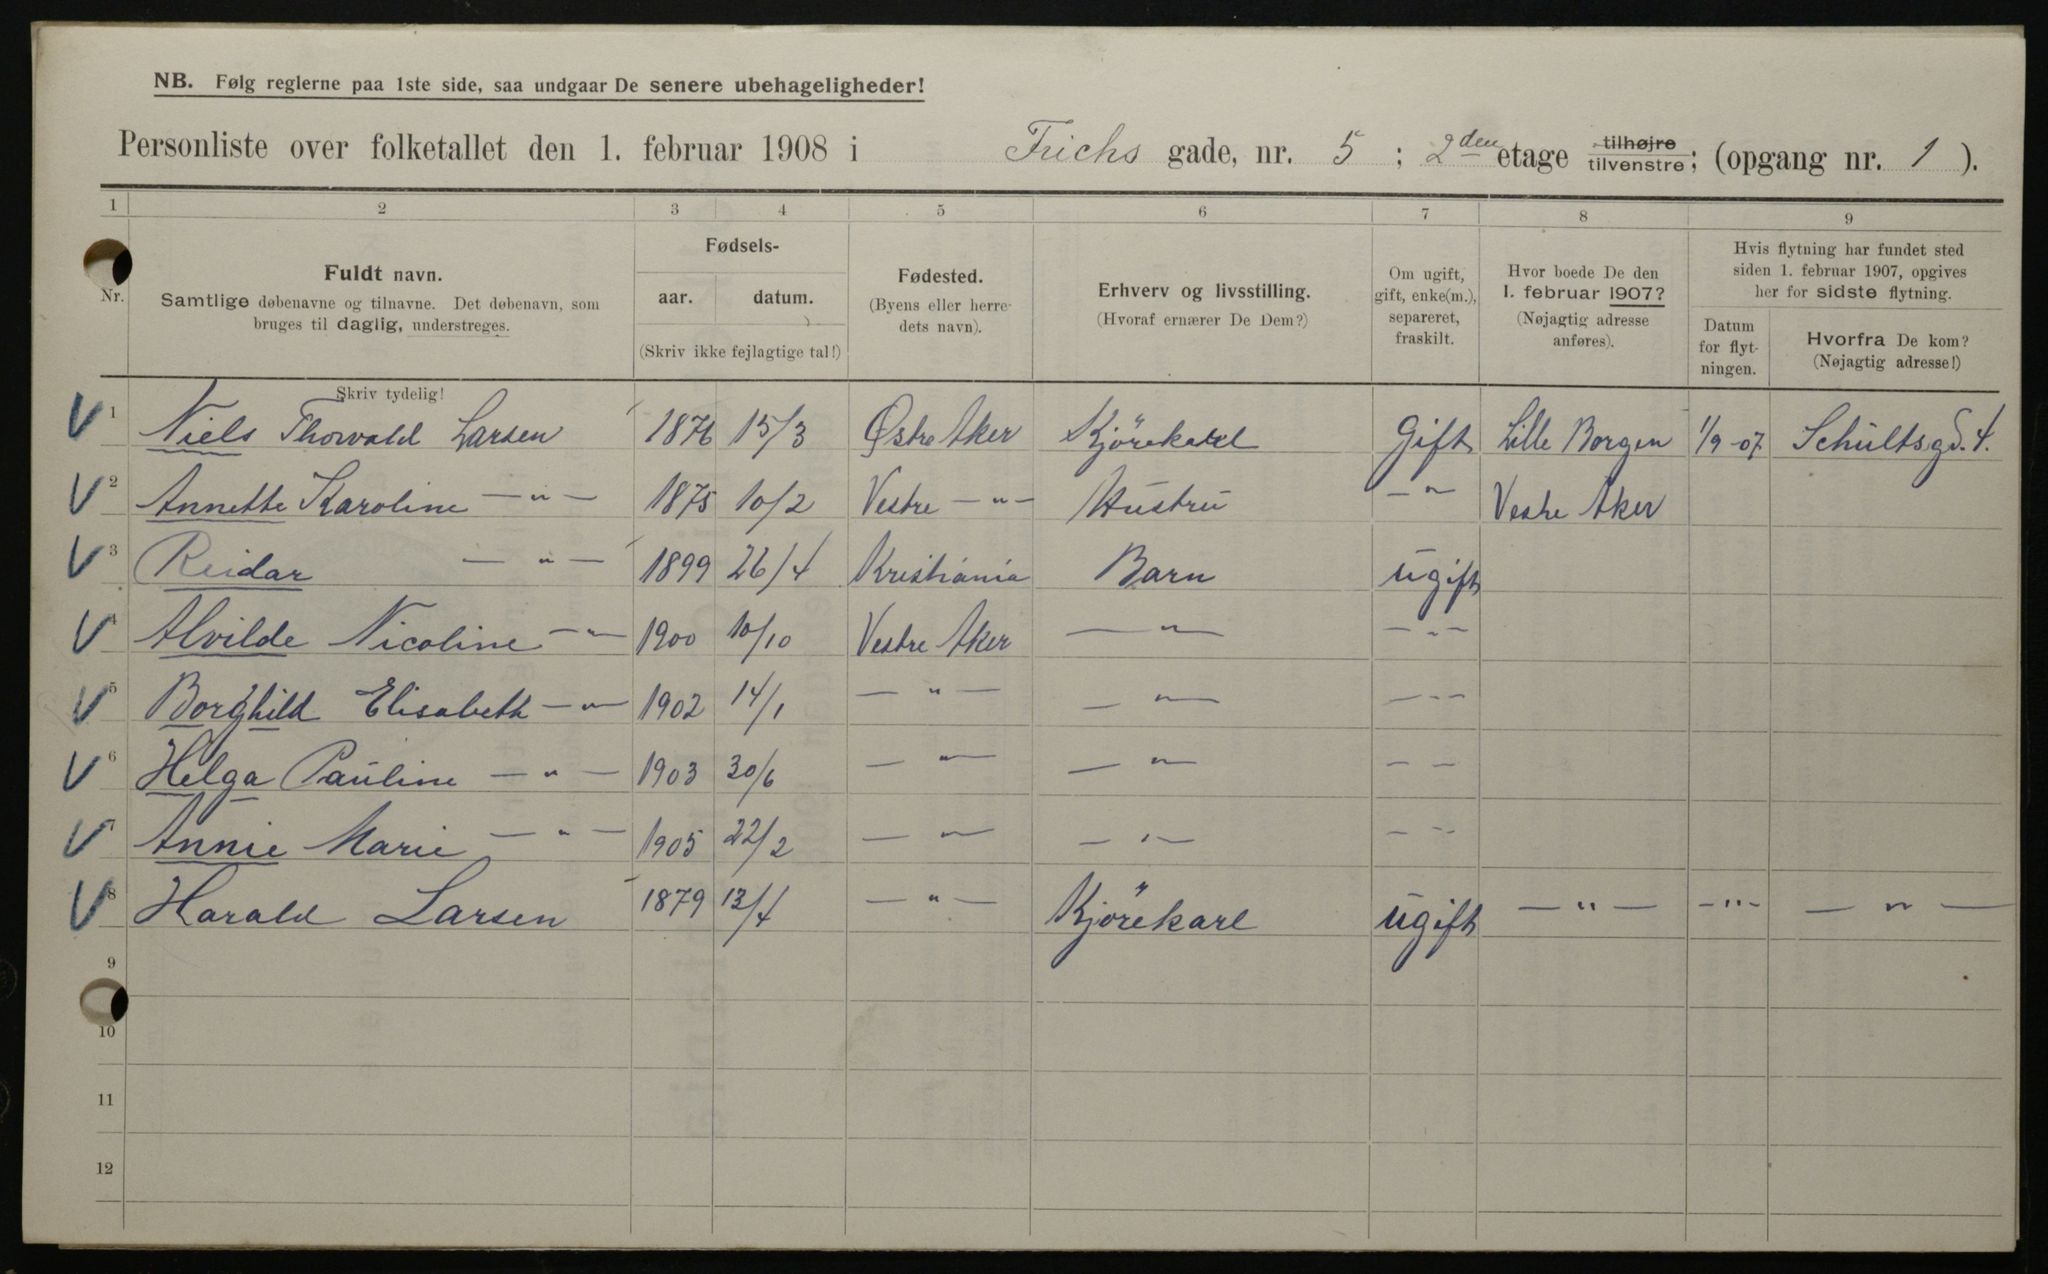 NB. Følg reglerne paa 1ste side, saa undgaar De senere ubehageligheder!
Personliste over folketallet den 1. februar 1908 i Frichs gade, nr. 5 ; 2den etage tilhøjre tilvenstre; (opgang nr. 1 ).
1 2 3 4 5 6 7 8 9
Nr.
Fuldt navn.
Samtlige døbenavne og tilnavne. Det døbenavn, som
bruges til daglig, understreges.
Skriv tydelig!
Fødsels-
aar. datum.
(Skriv ikke fejlagtige tal!)
Fødested.
(Byens eller herre-
dets navn).
Erhverv og livsstilling.
(Hvoraf ernærer De Dem?)
Om ugift,
gift, enke(m.),
separeret,
fraskilt.
Hvor boede De den
1. februar 1907?
(Nøjagtig adresse
anføres).
Hvis flytning har fundet sted
siden 1. februar 1907, opgives
her for sidste flytning.
Datum
for flyt-
ningen.
Hvorfra De kom?
(Nøjagtig adresse!)
1 Niels Thorvald Larsen 1876 15/3 Østre Aker Kjörekarl Gift Lille Borgen 1/9-07 Schultsgd. 4.
2 Annette Karoline — " — 1875 10/2 Vestre — " — Hustru — " Vestre Aker
3 Reidar — " — 1899 26/4 Kristiania Barn ugift
4 Alvilde Nicoline — " — 1900 10/10 Vestre Aker — " — — " —
5 Borghild Elisabeth — " — 1902 14/1 — " — — " — — " —
6 Helga Pauline — " — 1903 30/6 — " — — " — — " —
7 Annie Marie — " — 1905 22/2 — " — — " — — " —
8 Harald Larsen 1879 13/4 — " — Kjörekarl ugift — " — — " — — " —
9
10
11
12